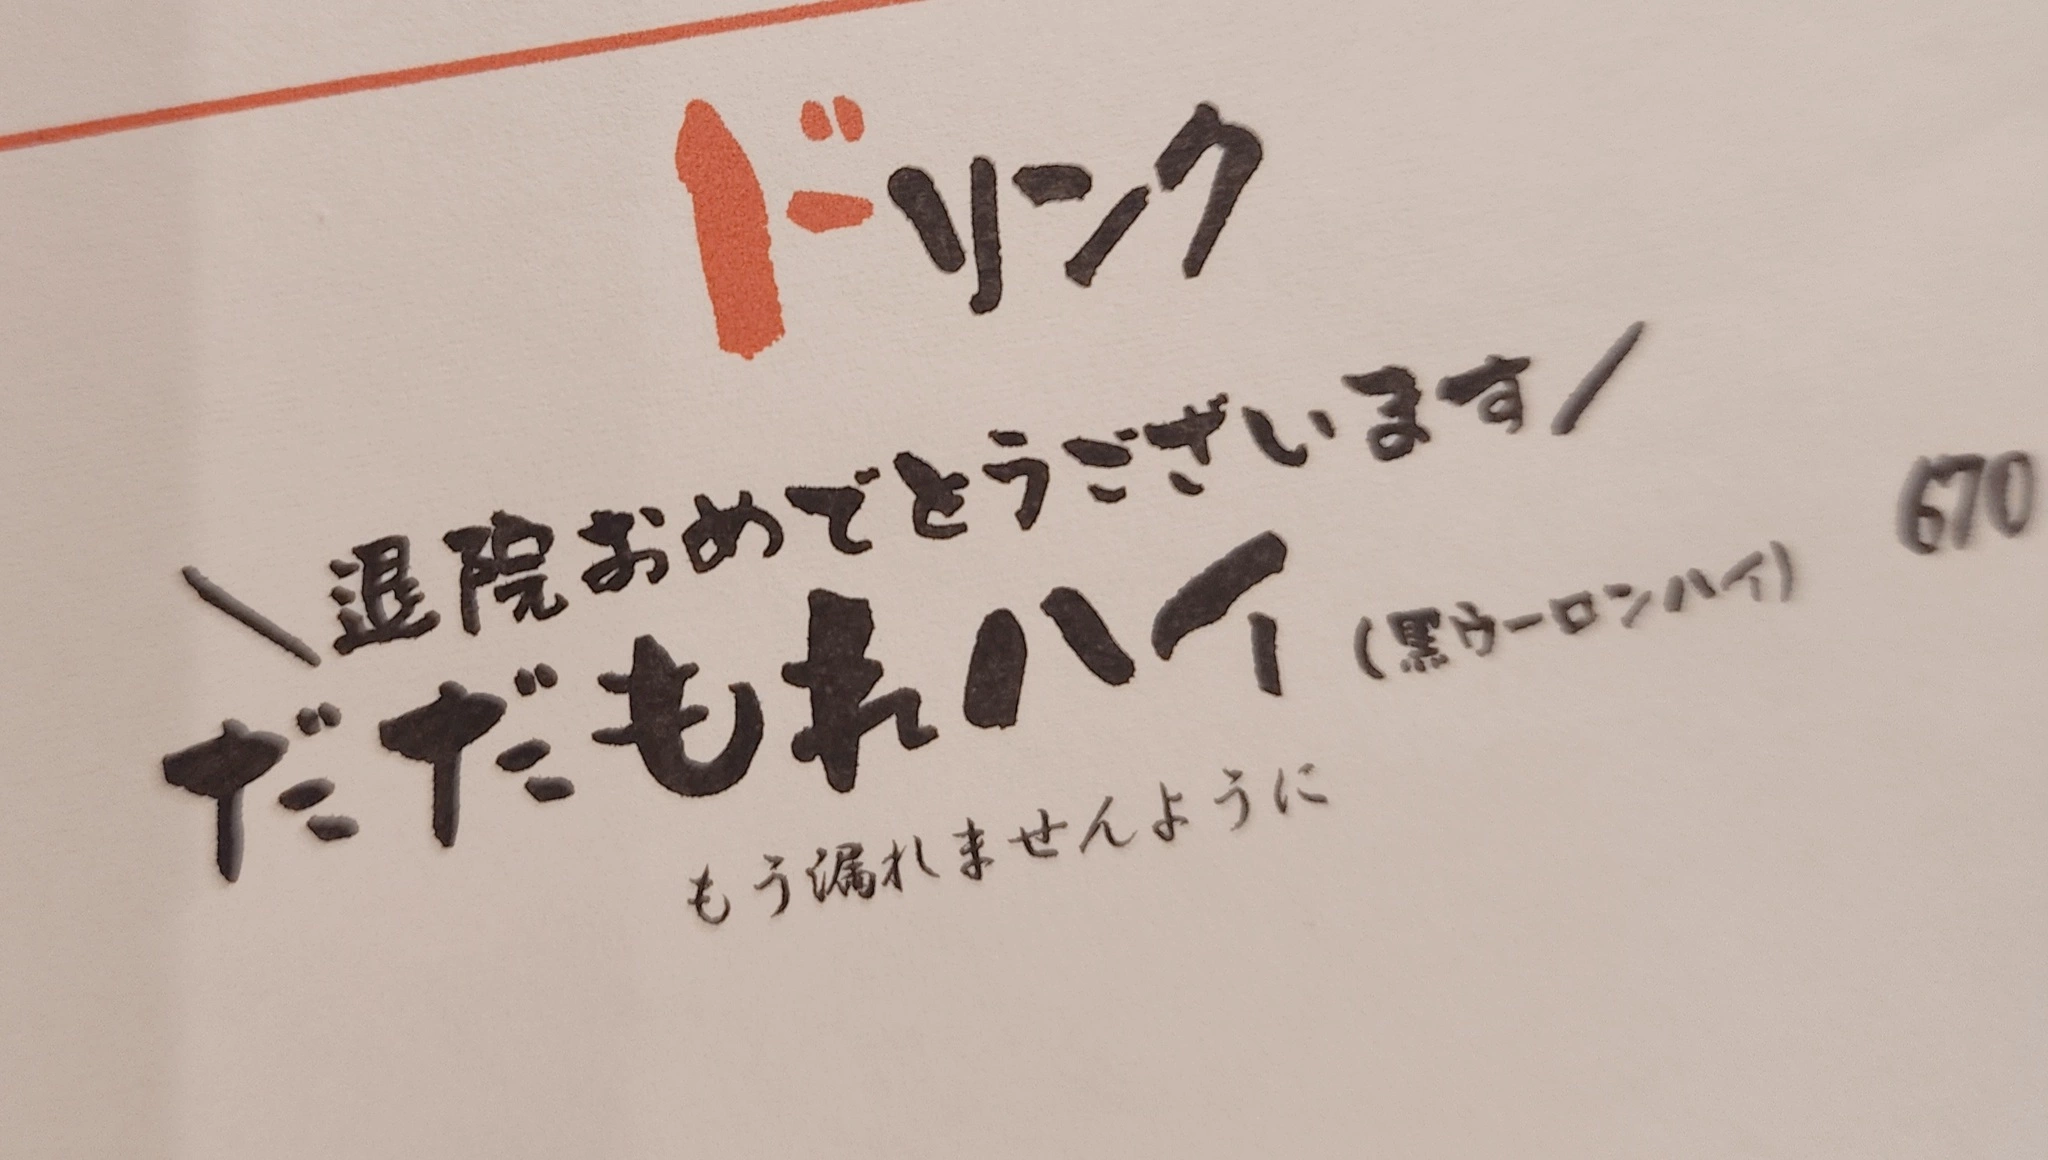 ドリンク
＼退院おめでとうございます／
だだもれハイ（黒ウーロンハイ） 670
もう漏れませんように